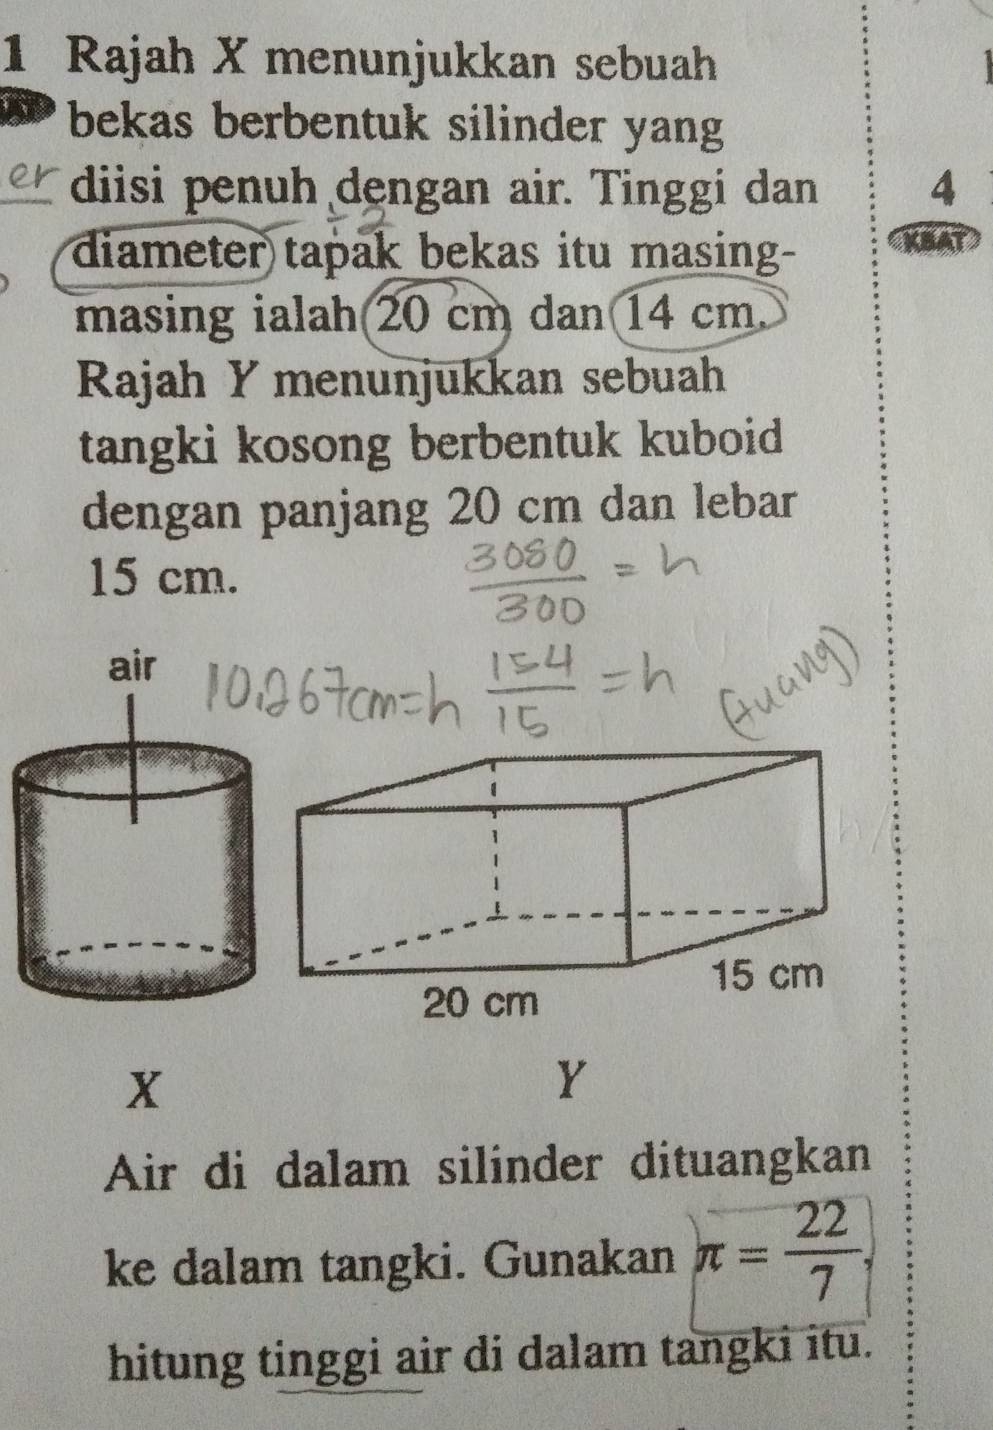 1 Rajah X menunjukkan sebuah
bekas berbentuk silinder yang
er diisi penuh dengan air. Tinggi dan
÷2
diameter tapak bekas itu masing-
masing ialah 20 cm dan 14 cm.
Rajah Y menunjukkan sebuah
tangki kosong berbentuk kuboid
dengan panjang 20 cm dan lebar
15 cm.
3080/300 = h
154/15 = h
10.267cm=h
(tuang)
air
20 cm
15 cm
X
Y
Air di dalam silinder dituangkan
ke dalam tangki. Gunakan π = 22/7,
hitung tinggi air di dalam tangki itu.
4
KBAT